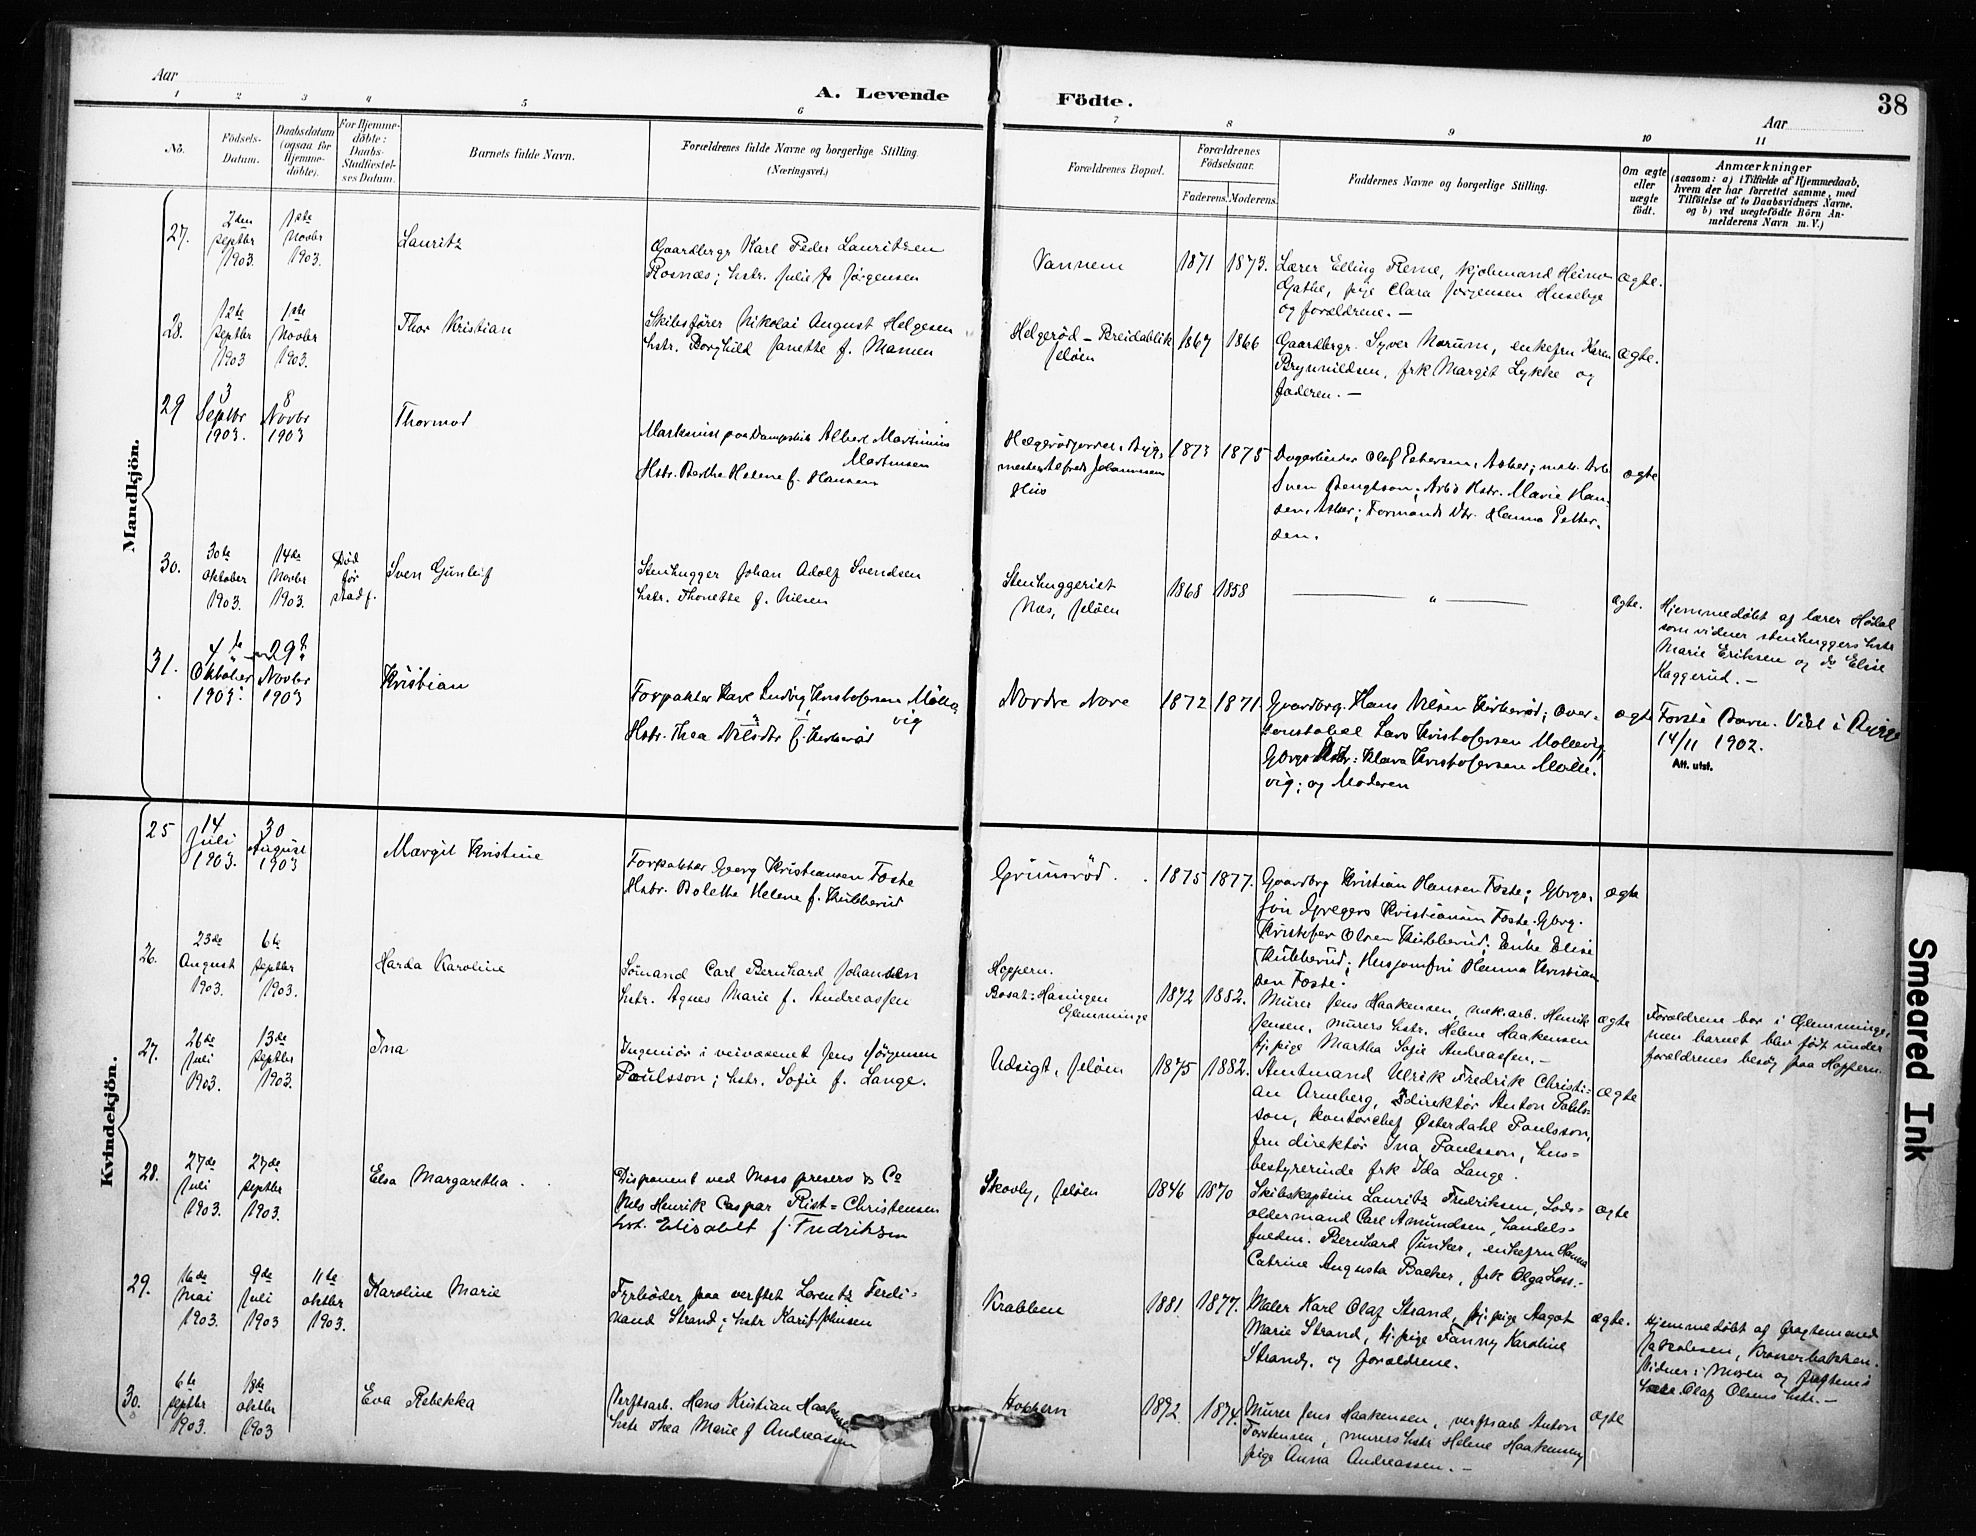 Aar
A. Levende
Födte.
38
Aar
1 2 3 4 5 6 7 8 9 10 11
No.
Födsels-
Datum.
Daabsdatum
(ogsaa for
Hjemme-
döbte).
For Hjemme-
döbte:
Daabs-
Stadfæstel-
ses Datum.
Barnets fulde Navn.
Forældrenes fulde Navne og borgerlige Stilling.
(Næringsvei.)
Forældrenes Bopæl.
Forældrenes
Födselsaar.
Faderens. Moderens.
Faddernes Navne og borgerlige Stilling.
Om ægte
eller
uægte
født.
Anmærkninger
(saasom: a) i Tilfælde af Hjemmedaab,
hvem der har forrettet samme, med
Tilföielse af to Daabsvidners Navne,
og b) ved uægtefödte Börn An-
melderens Navn m. V.)
Mandkjön.
27.
2den
septbr
1903.
1ste
Novbr
1903.
Lauritz
Gaardbergr Karl Peder Lauritzen
Rosnæs; hstr. Julie f. Jørgensen
Vannem
1871 1873.
Lærer Elling Reme,
Gathe, pige Clara Jørgensen Husebye
og forældrene. —
ægte.
28.
12te
septbr
1903
1ste
Novbr
1903.
Thor Kristian
Skibsfører Nikolai August Helgesen
hstr. Borghild Janette f. Mamen
Helgerød - Breidablik
Jeløen
1867 1866
Gaardbergr. Syver Norum, enkefru Karen
Brynnildsen, frk Margit Lykke og
faderen. —
ægte.
29
3
Septbr
1903.
8
Novbr
1903
Thormod
Maskinist paa Dampskib Albert Martinius
Martinsen
Hstr. Berthe Helene f. Hansen
mester Alfred Johannesens
Hus
1873 1875
Olaf Petersen, Asker;
Sven Bengtson; Arbs Hstr. Marie Han-
sen, Asker; Formands Dtr. Hanna Petter-
sen.
ægte
30.
30te
oktober
1903.
14de
Novbr
1903.
Død
før
stadf.
Sven Gunleif
Stenhugger Johan Adolf Svendsen
hstr. Thonette f. Nilsen
Stenhuggeriet
Næs, Jeløen
1868 1858
— " —
ægte.
Hjemmedøbt af lærer Hødal
som vidner stenhuggers hstr
Marie Eriksen og do Elise
Kaggerud. —
31.
4de
Oktober
1903.
29de
Novbr
1903
Kristian
Forpakter Karl Ludvig Kristofersen Mølle
vig
Hstr. Thea Nilsdtr f. Kirkerød
Nordre Nore
1872 1871
Gaardbrg. Hans Nilsen Kirkerød; Over-
konstabel Lars Kristofersen Mollevig;
Gbrgs Dtr: Klara Kristofersen Molle-
vig; og Moderen
ægte
Første Barn. Viet i Rygge
14/11 1902.
Att. utst.
Kvindekjön.
25
14
Juli
1903.
30
August
1903
Margit Kristine
Forpakter Georg Kristiansen Foste
Hstr. Bolette Helene f. Kubberud
Grimsrød.
1875 1877.
Gaardbrg Kristian Hansen Foste; Gbrgs.
søn Gregers Kristiansen Foste; Gbrg.
Kristofer Olsen Kubberud; Enke Elise
Kubberud; Husjomfru Hanna Kristian
sen Foste.
ægte
26.
23de
August
1903.
6te
septbr
1903.
Harda Karoline
Sømand Carl Bernhard Johansen
hstr. Agnes Marie f. Andreassen
Hoppern.
Bosat: Hasingen
Glemminge
1872 1882.
Murer Jens Haakensen, mek. arb. Henrik
Jensen, murers hstr. Helene Haakensen
tj. pige Martha Sofie Andreassen. —
ægte
Forældrene bor i Glemminge,
men barnet blev født under
forældrenes besøg paa Hoppern.
27.
26de
Juli
1903.
13de
septbr
1903.
Ina
Ingeniør i veivæsenet Jens Jørgensen
Paulsson; hstr. Sofie f. Lange.
Udsigt, Jeløen
1875 1882.
Amtmand Ulrik Fredrik Christi-
an Arneberg, direktør Anton Pauls-
son, kontorchef Østerdahl Paulsson,
fru direktør Ina Paulsson, hus-
bestyrerinde frk Ida Lange.
ægte
28.
27de
Juli
1903.
27de
septbr
1903.
Elsa Margaretha.
Disponent ved Moss preserv & Co
Nils Henrik Caspar Rist-Christensen
hst. Elisabet f. Fredriksen
Skovly, Jeløen
1846 1870
Skibskaptein Lauritz Fredriksen, Lods-
oldermand Carl Amundsen, handels-
fuldm. Bernhard Junker, enkefru Hanna
Catrine Augusta Backer, frk Olga Loss.—
ægte
29.
16de
Mai
1903.
9de
Juli
1903
11te
oktbr
1903.
Karoline Marie
Fyrbøder paa verftet Lorentz Ferdi-
nand Strand; hstr Kari f. Johnsen
Krabben
1881. 1877.
Maler Karl Olaf Strand, tj. pige Aagot
Marie Strand, tj. pige Fanny Karoline
Strand, og forældrene.
ægte.
Hjemmedøbt af fragtemand
Jakobsen, Krosserbakken.
Vidner: Moren og
Olaf Olsens hstr. —
30.
6te
septbr
1903.
18de
oktbr
1903
Eva Rebekka
Verftsarb. Hans Kristian Haakensen
hstr Thea Marie f Andreassen
Hoppern
1872. 1874.
Murer Jens Haakensen, verftsarb Anton
Torstensen, murers hstr Helene Haakensen,
pige Anna Andreassen. —
ægte
Smeared Ink